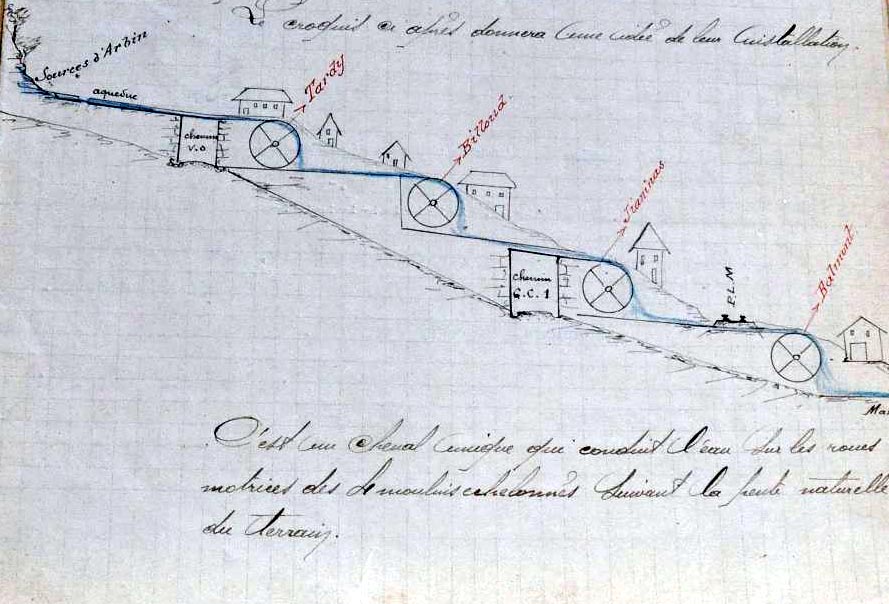 Le croquis ci après donnera une idée de leur installation.
Sources d'Arbin
aqueduc
Tardy
chemin
V.O
Billoud
Traminas
chemin
G.C.1
P.L.M
Balmont
C'est un chenal unique qui conduit l'eau sur les roues
motrices des 4 moulins échelonnés suivant la pente naturelle
du terrain.